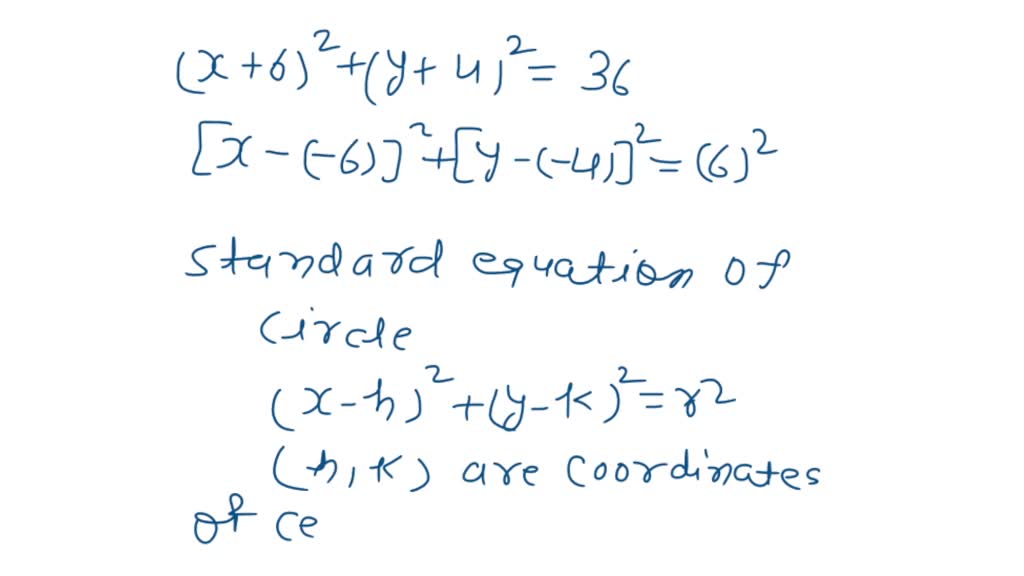 (x+6)²+(y+4)²= 36
[x-(-6)]²+[y-(-4)]²= (6)²
standard equation of
circle
(x-h)²+(y-k)²= r2
(h,k) are coordinates
of ce